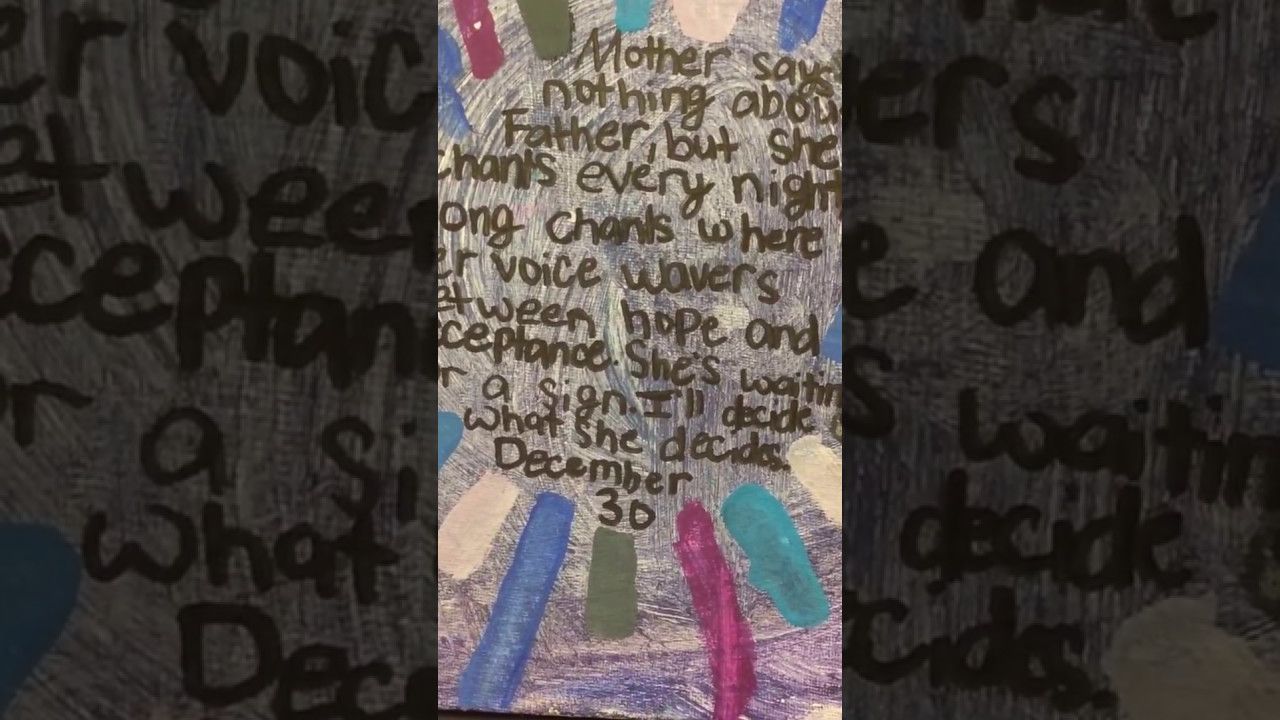 Mother says
nothing abou
Father, but she
chants every night
ong chants where
er voice wavers
etween hope and
cceptance. She's waitin
r a sign. I'll decide
what she decides.
December
30